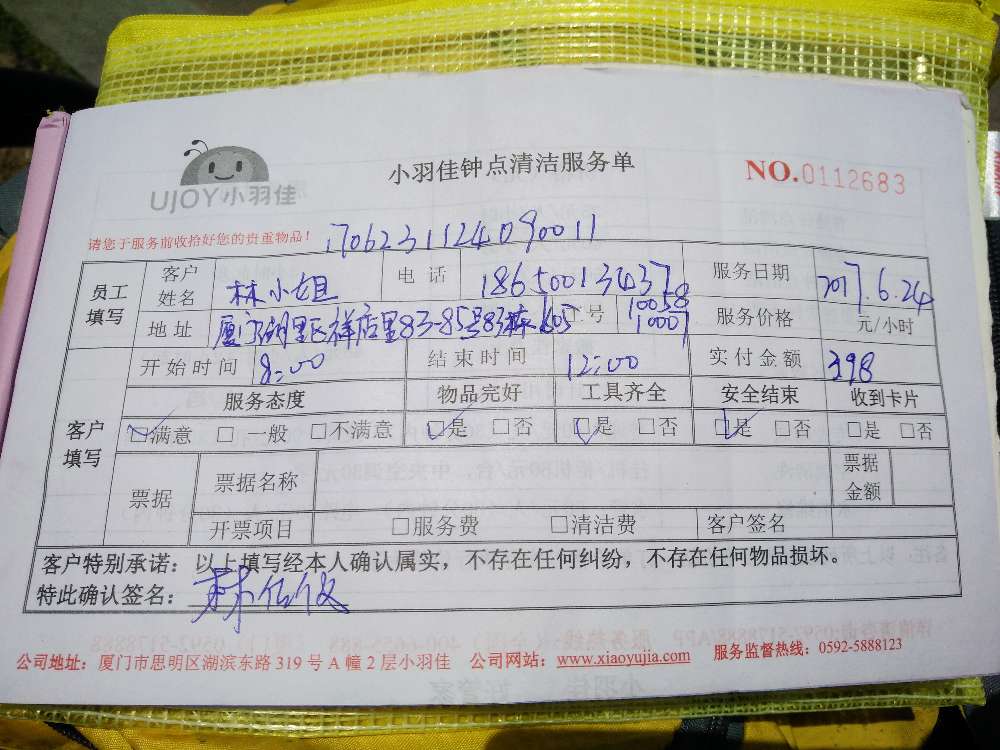 UJOY小羽佳
小羽佳钟点清洁服务单
NO.0112683
请您于服务前收拾好您的贵重物品!
1706231124090011
员工填写 客户姓名 林小姐 电话 18650013437 服务日期 2017.6.24
地址 厦门湖里区祥店里83-85号83栋605 工号 10058 10007 服务价格 元/小时
客户填写 开始时间 8:00 结束时间 12:00 实付金额 398
服务态度 物品完好 工具齐全 安全结束 收到卡片
☑满意 □一般 □不满意 ☑是 □否 ☑是 □否 ☑是 □否 □是 □否
票据 票据名称 票据金额
开票项目 □服务费 □清洁费 客户签名
客户特别承诺:以上填写经本人确认属实,不存在任何纠纷,不存在任何物品损坏。
特此确认签名:林
公司地址:厦门市思明区湖滨东路319号A幢2层小羽佳 公司网站:www.xiaoyujia.com 服务监督热线:0592-5888123